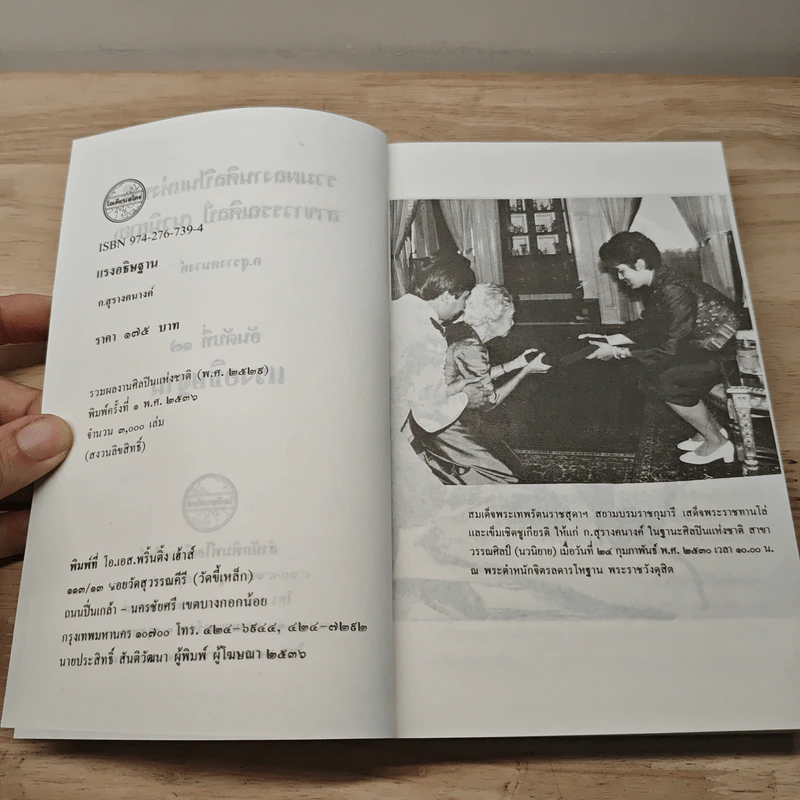 โอเดียนสโตร์
ISBN 974-276-739-4
แรงอธิษฐาน
ก.สุรางคนางค์
ราคา ๑๗๕ บาท
รวมผลงานศิลปินแห่งชาติ (พ.ศ. ๒๕๒๙)
พิมพ์ครั้งที่ ๑ พ.ศ. ๒๕๓๖
จำนวน ๓,๐๐๐ เล่ม
(สงวนลิขสิทธิ์)
พิมพ์ที่ โอ.เอส.พริ้นติ้ง เฮ้าส์
๑๑๓/๑๓ ซอยวัดสุวรรณคีรี (วัดขี้เหล็ก)
ถนนปิ่นเกล้า - นครชัยศรี เขตบางกอกน้อย
กรุงเทพมหานคร ๑๐๗๐๐ โทร. ๔๒๔-๖๙๔๔, ๔๒๔-๗๒๙๒
นายประสิทธิ์ สันติวัฒนา ผู้พิมพ์ ผู้โฆษณา ๒๕๓๖
สมเด็จพระเทพรัตนราชสุดาฯ สยามบรมราชกุมารี เสด็จพระราชทานโล่
และเข็มเชิดชูเกียรติ ให้แก่ ก.สุรางคนางค์ ในฐานะศิลปินแห่งชาติ สาขา
วรรณศิลป์ (นวนิยาย) เมื่อวันที่ ๒๔ กุมภาพันธ์ พ.ศ. ๒๕๓๐ เวลา ๑๐.๐๐ น.
ณ พระตำหนักจิตรลดารโหฐาน พระราชวังดุสิต